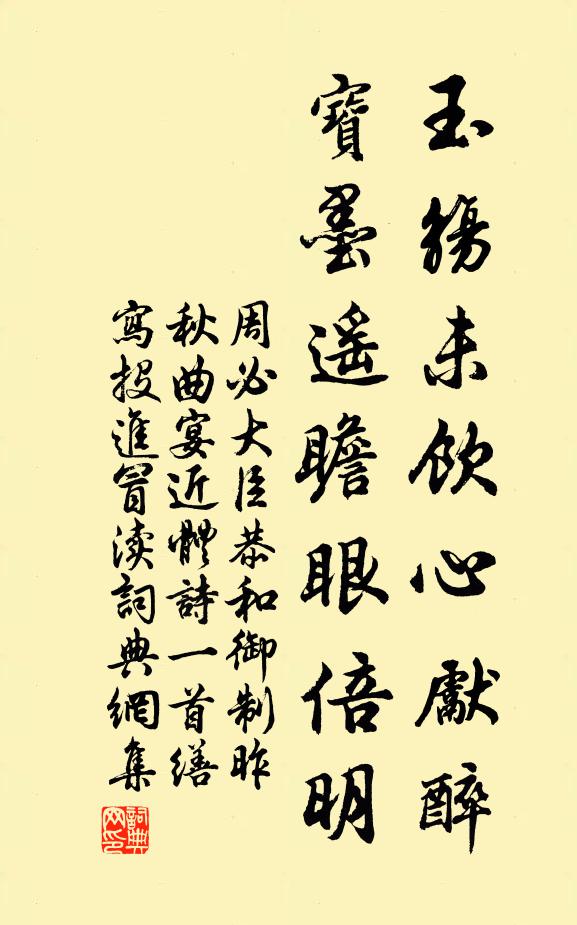 玉觴未飲心獻醉
寶墨遥瞻眼倍明
周必大臣恭和御制昨
秋曲宴近體詩一首繕
寫投進冒渎詞典網集
詞典网印